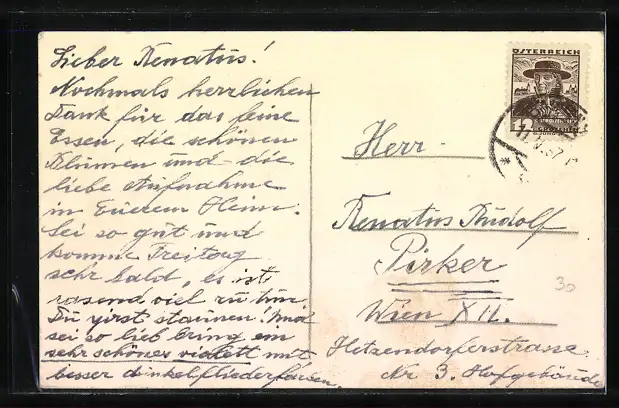 Lieber Renatus!
Nochmals herzlichen
Dank für das feine
Essen, die schönen
Blumen und die
liebe Aufnahme
in Eurem Heim.
Sei so gut und
komme Freitag
sehr bald, es ist
rasend viel zu tun.
Du wirst staunen! Und
sei so lieb bring ein
sehr schönes violett mit
besser dunkelfliederfarben.
ÖSTERREICH
12
Herr
Renatus Rudolf
Pirker
Wien XII.
Hetzendorferstrasse
Nr 3. Hofgebäude
30